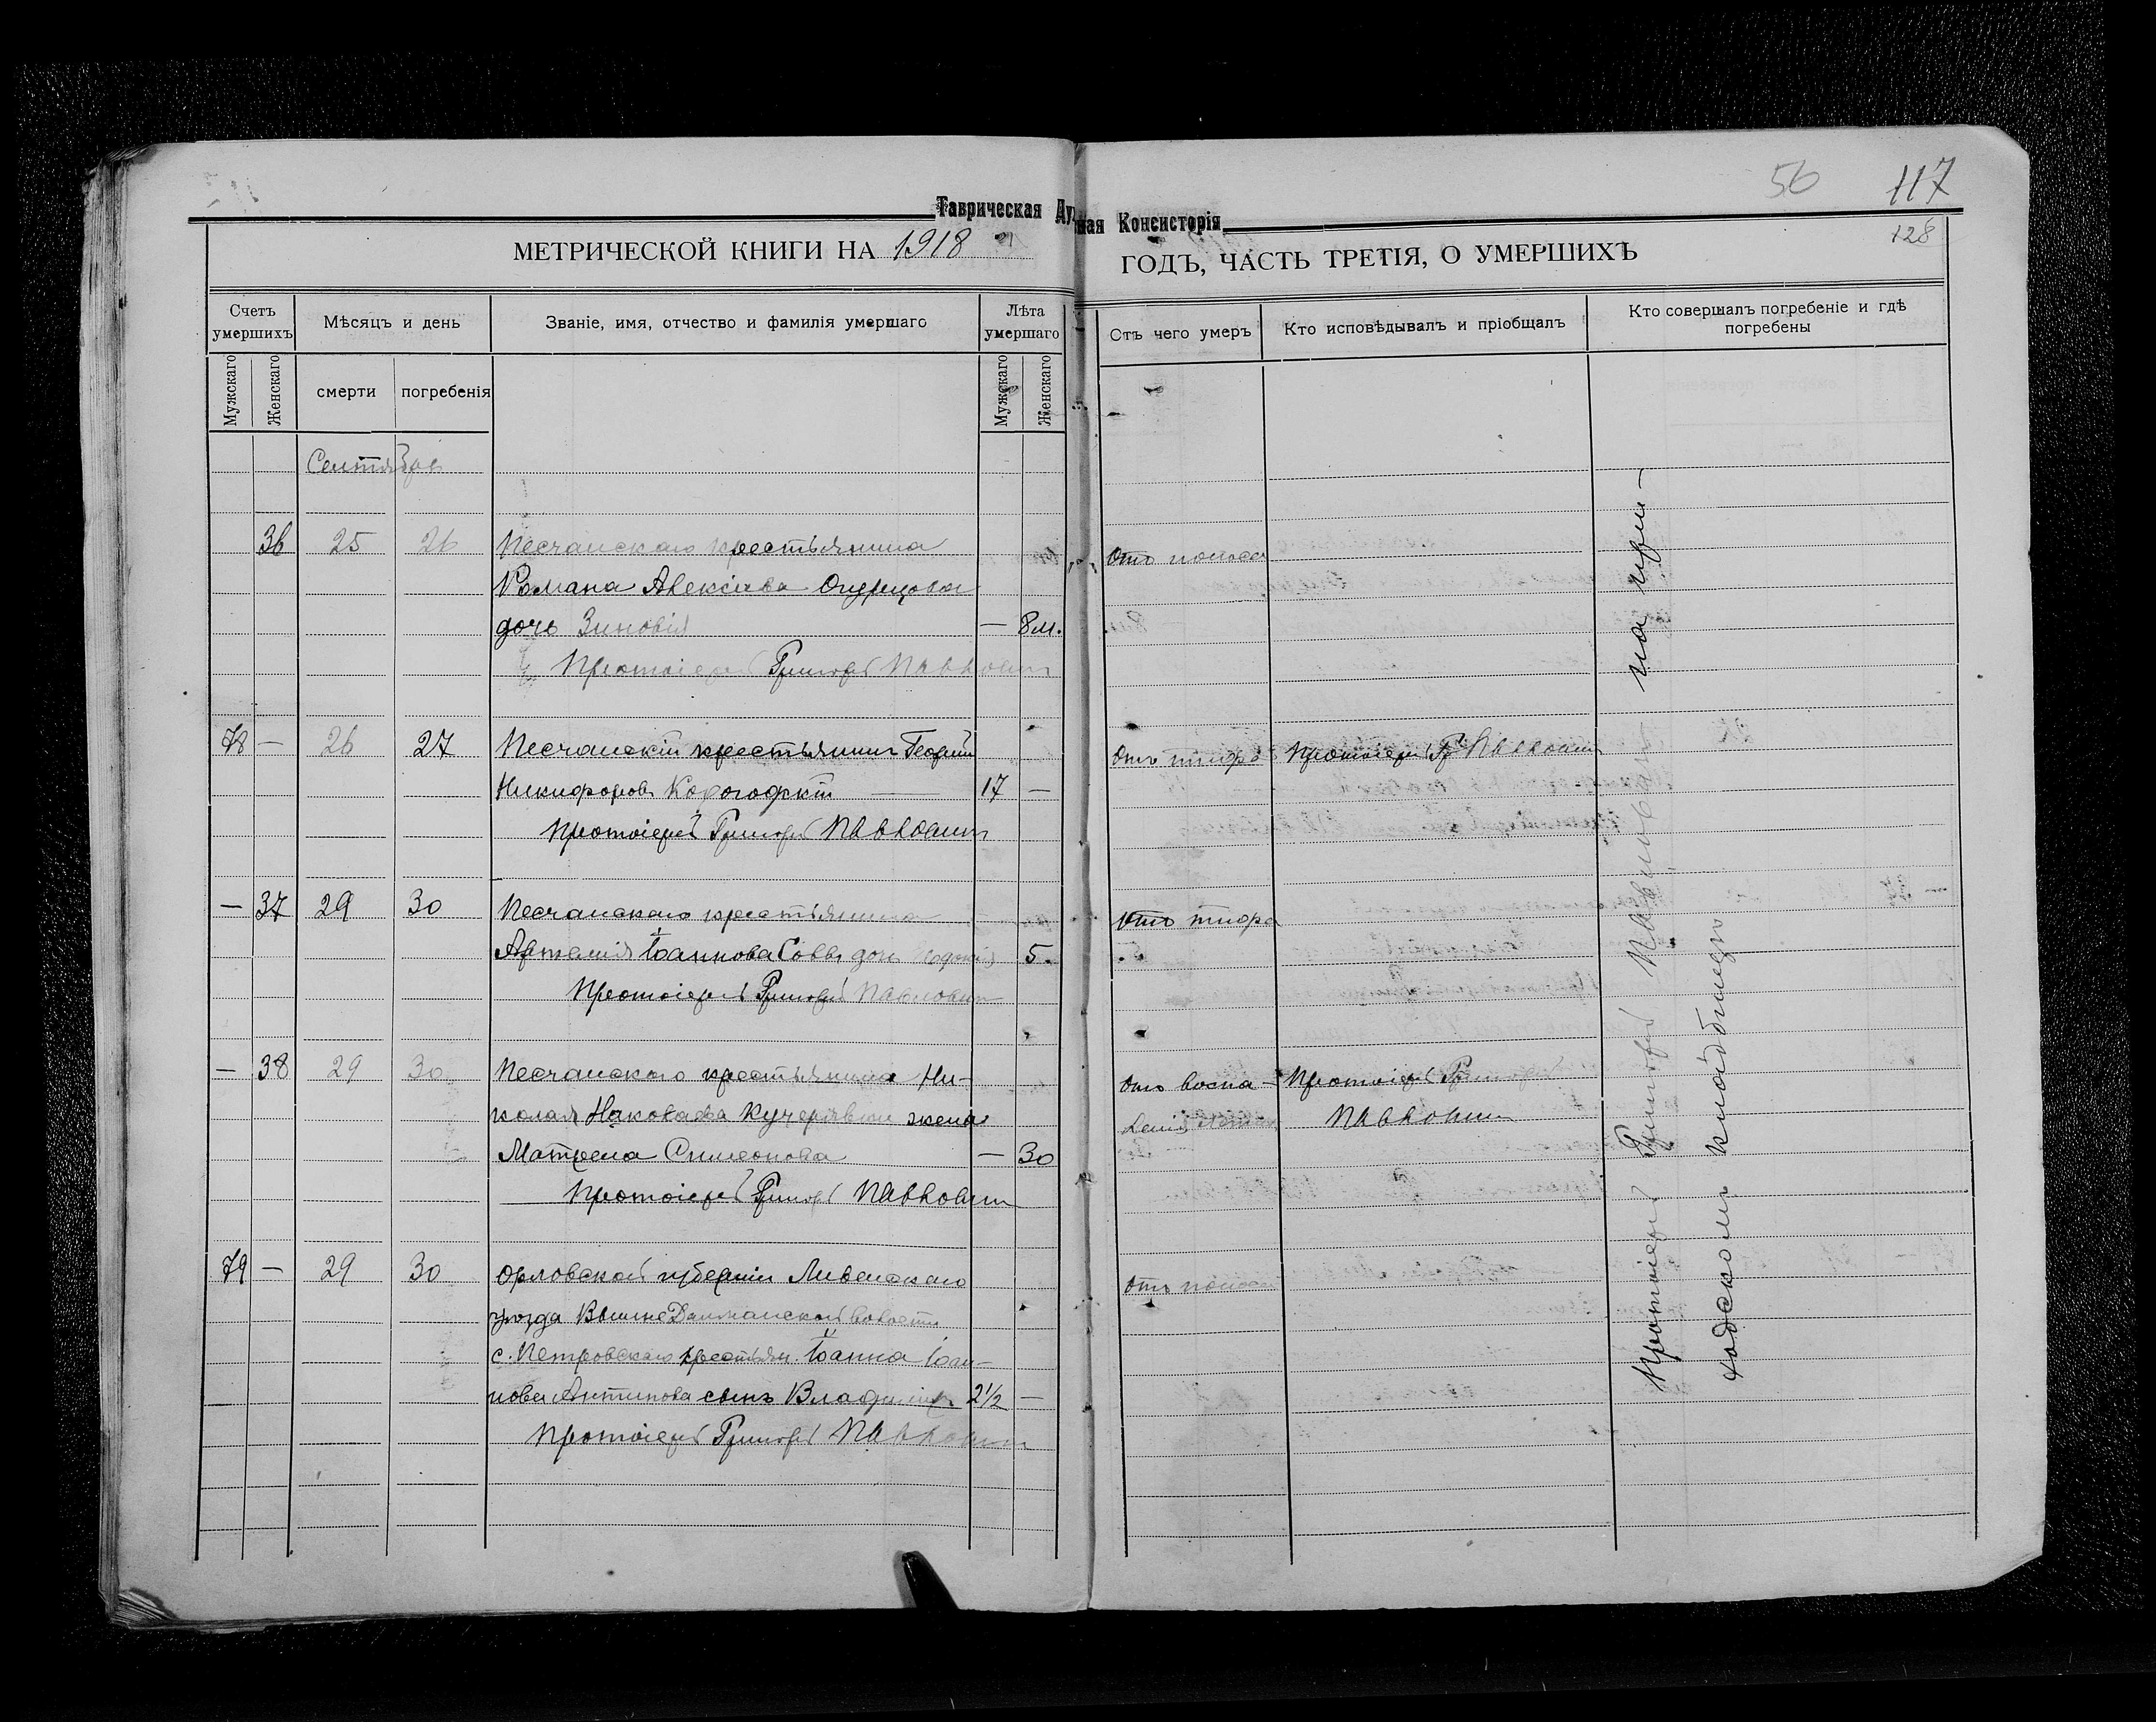 56 117
Таврическая Духовная Консисторія
128
МЕТРИЧЕСКОЙ КНИГИ НА 1918 ГОДЪ, ЧАСТЬ ТРЕТІЯ, О УМЕРШИХЪ
Счетъ умершихъ
Мѣсяцъ и день
Званіе, имя, отчество и фамилія умершаго
Лѣта умершаго
Стъ чего умеръ
Кто исповѣдывалъ и пріобщалъ
Кто совершалъ погребеніе и гдѣ погребены
Мужскаго
Женскаго
смерти
погребенія
Мужскаго
Женскаго
Сентябрь
36 25 26 Песчанскаго крестьянина Отъ поноса
Романа Алексіева Огурцова
дочь Зиновія — 8 м.
Протоіерей Григорій Павловичъ
78 — 26 27 Песчанскій крестьянинъ Георгій Отъ тифа Протоіерей Гр. Павловичъ
Никифоровъ 17 —
Протоіерей Григорій Павловичъ
— 37 29 30 Песчанскаго крестьянина Отъ тифа
Артемія Іоаннова Саввы дочь 5.
Протоіерей Григорій Павловичъ
— 38 29 30 Песчанскаго крестьянина Ни- Отъ воспа- Протоіерей Григорій
колая жена ленія Павловичъ
Матрена Симеонова — 30
Протоіерей Григорій Павловичъ
79 — 29 30 Орловской губерніи Ливенскаго Отъ поноса
уѣзда волости
с. Петровскаго крестьян. Іоанна Іоан-
нова Антипова сынъ Владиміръ 2½ —
Протоіерей Григорій Павловичъ
Протоіерей Григорій Павловичъ на при-
ходскомъ кладбищѣ